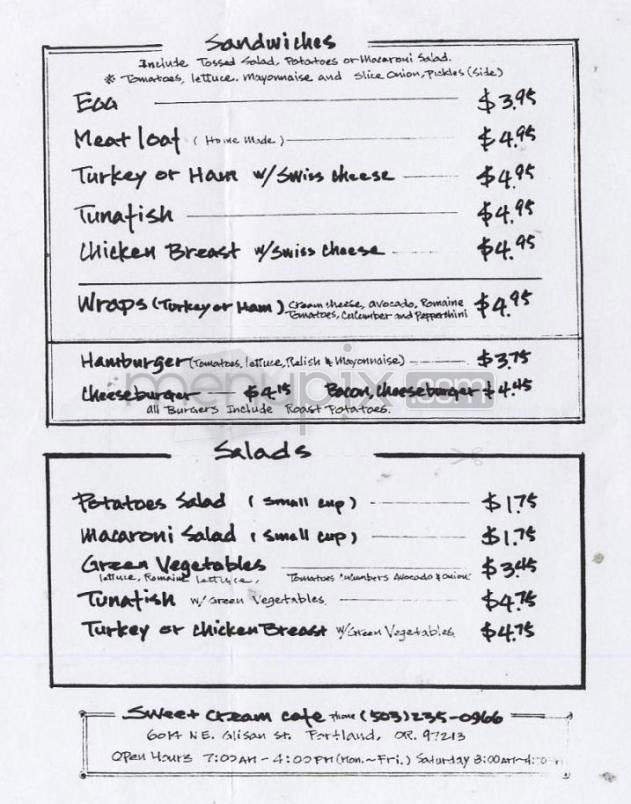 Sandwiches
Include Tossed Salad, Potatoes or Macaroni Salad.
* Tomatoes, lettuce, Mayonnaise and Slice Onion, Pickles (Side)
Egg $3.95
Meat loaf (Home Made) $4.95
Turkey or Ham w/Swiss cheese $4.95
Tunafish $4.95
Chicken Breast w/Swiss cheese $4.95
Wraps (Turkey or Ham) Cream cheese, avocado, Romaine $4.95
Tomatoes, Cucumber and Pepperchini
Hamburger (Tomatoes, lettuce, Relish & Mayonnaise) $3.75
Cheeseburger $4.15 Bacon, Cheeseburger $4.45
menupix.com
all Burgers Include Roast Potatoes.
Salads
Potatoes Salad (small cup) $1.75
Macaroni Salad (small cup) $1.75
Green Vegetables $3.45
lettuce, Romaine lettuce, Tomatoes Cucumbers Avocado & onion
Tunafish w/Green Vegetables $4.75
Turkey or Chicken Breast w/Green Vegetables $4.75
Sweet Cream Cafe Phone (503) 235-0966
6014 N.E. Glisan St. Portland, OR. 97213
Open Hours 7:00AM - 4:00PM (Mon. ~ Fri.) Saturday 8:00AM~4:00